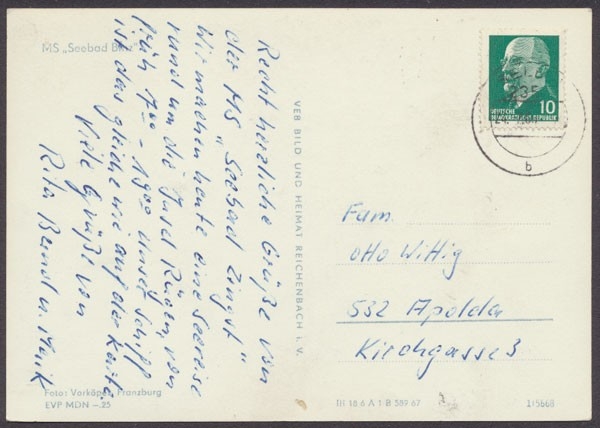 MS „Seebad Binz"
Recht herzliche Grüße von
der MS „Seebad Zingst"
Wir machen heute eine Seereise
rund um die Insel Rügen, von
früh 7⁰⁰ - 19⁰⁰ Unser Schiff
ist das gleiche wie auf der Karte.
Viele Grüße von
Rita, Bernd u. Maik
Foto: Vorkäper, Franzburg
EVP MDN —.25
VEB BILD UND HEIMAT REICHENBACH I. V.
DEUTSCHE
DEMOKRATISCHE REPUBLIK
10
b
Fam.
Otto Wittig
532 Apolda
Kirchgasse 3
III 18 6 A 1 B 589 67
115668